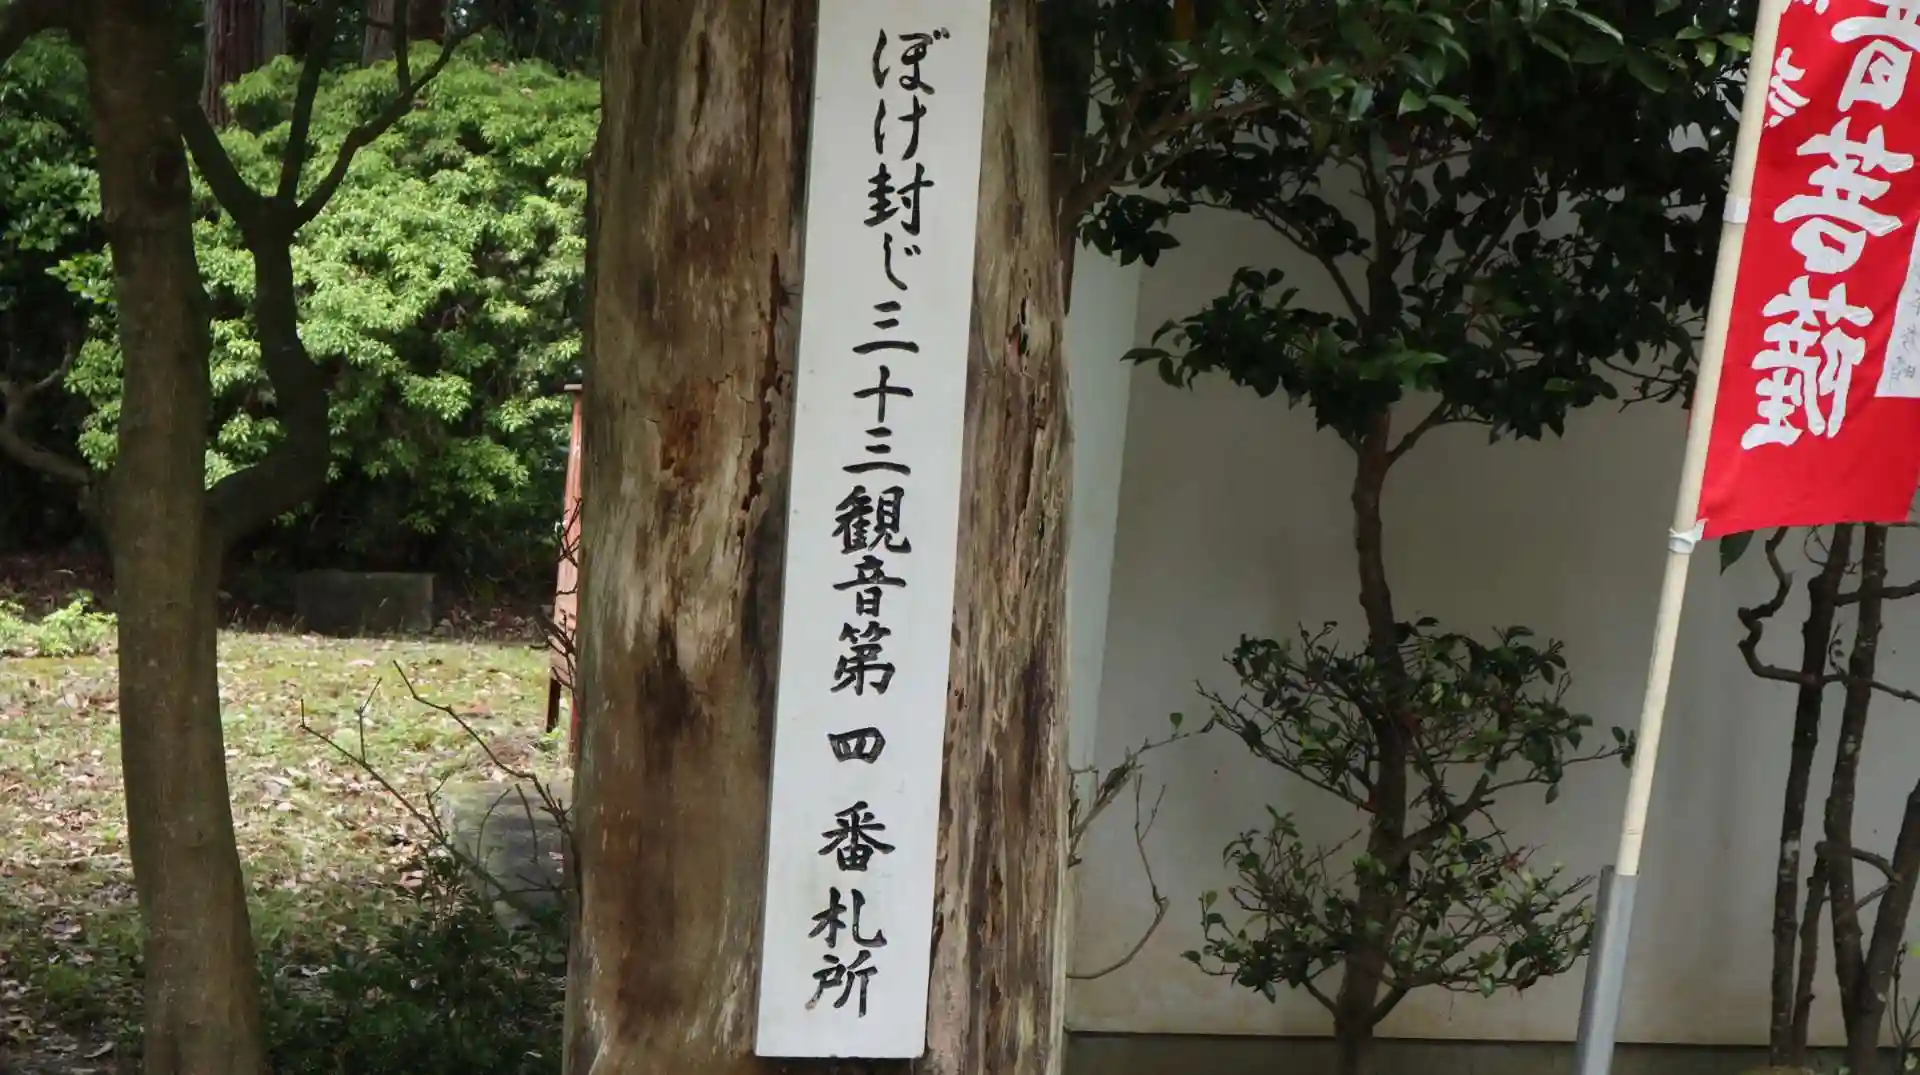 ぼけ封じ三十三観音第四番札所
音菩薩